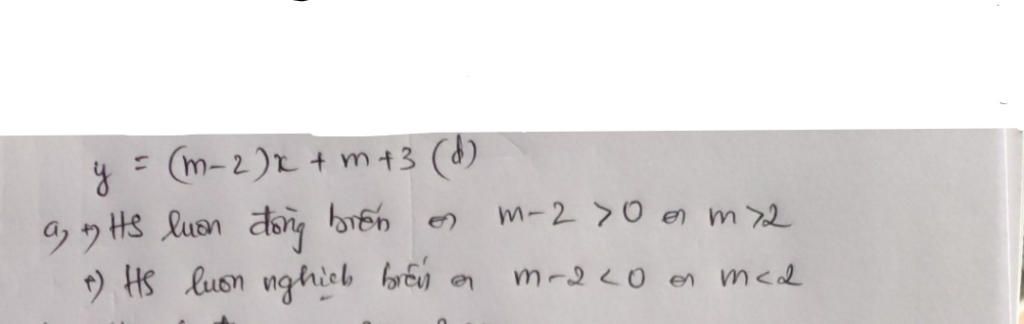 y = (m-2)x + m+3 (d)
a, +) HS luon đồng biến ⇔ m-2 >0 ⇔ m>2
+) HS luon nghich biến ⇔ m-2 <0 ⇔ m<2